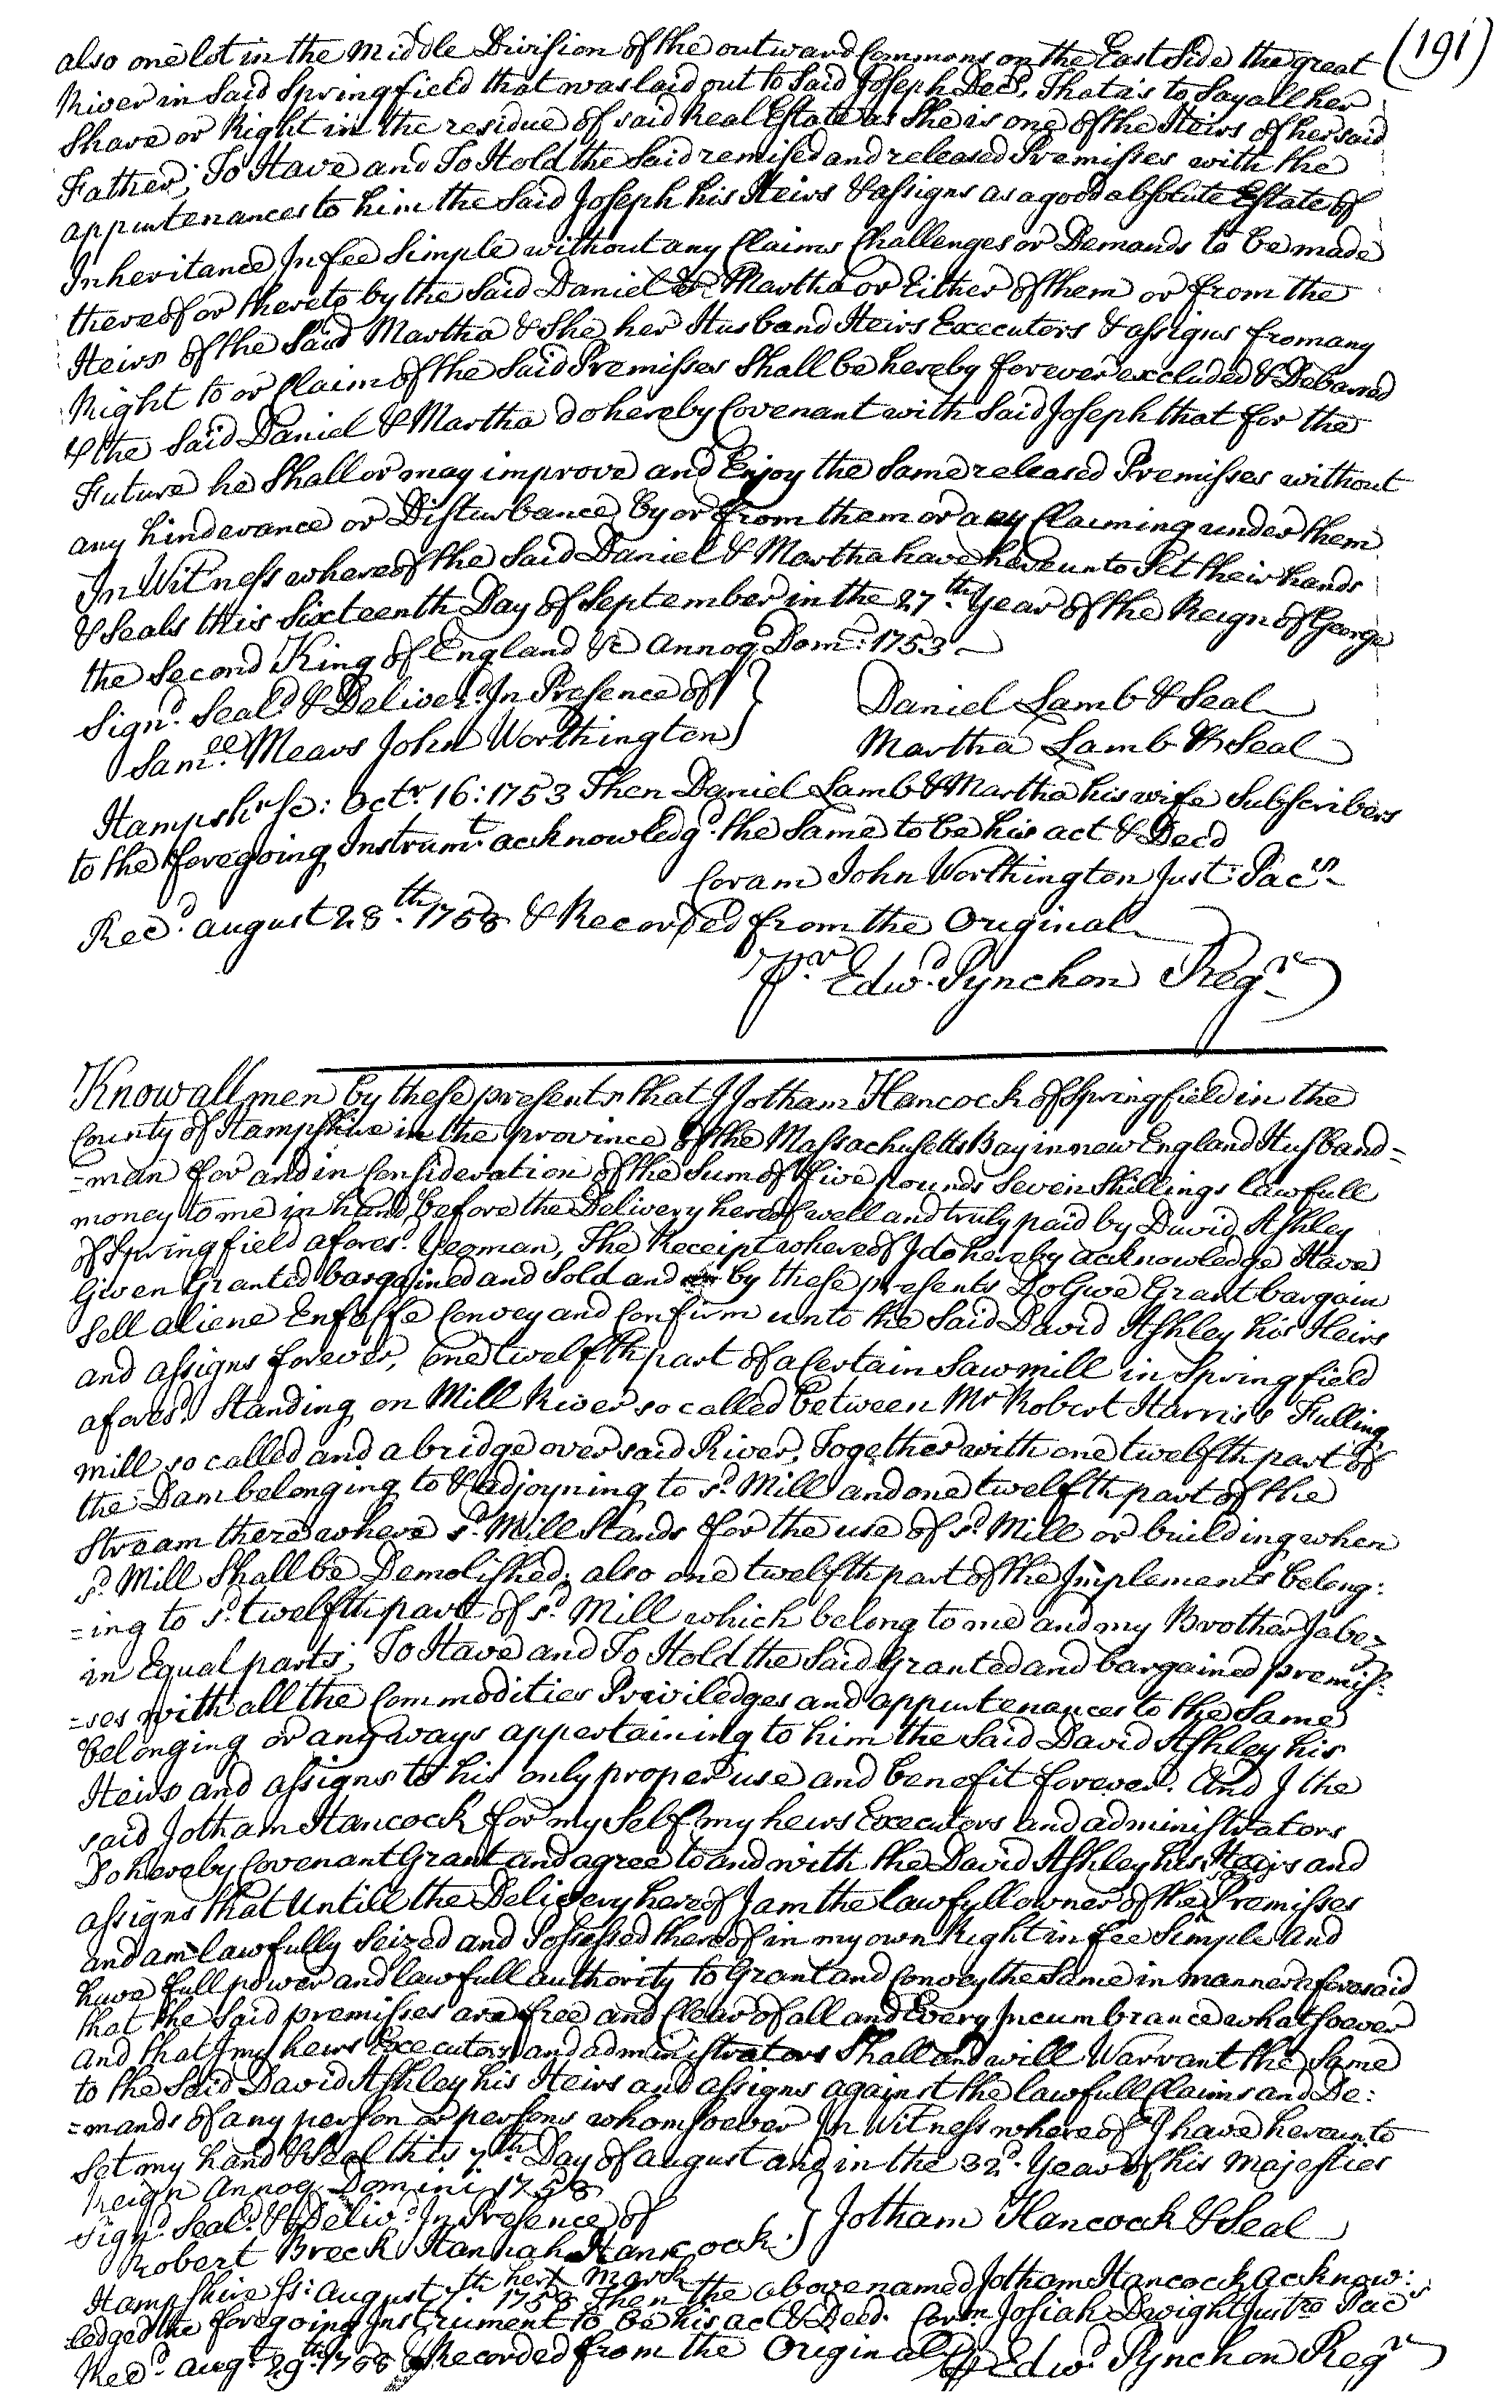 (191)
also one lot in the middle Division of the outward Commons on the East Side the great
River in Said Springfield that was laid out to Said Joseph Decd. That is to Say all her
Share or Right in the residue of said Real Estate as She is one of the Heirs of her said
Father; To Have and To Hold the Said remised and released Premisses with the
appurtenances to him the Said Joseph his Heirs & assigns as a good absolute Estate of
Inheritance In fee Simple without any Claims Challenges or Demands to be made
thereof or thereto by the Said Daniel & Martha or Either of them or from the
Heirs of the Said Martha & She her Husband Heirs Executors & assigns from any
Right to or Claim of the Said Premisses Shall be hereby forever excluded & Debarred
& the Said Daniel & Martha do hereby Covenant with Said Joseph that for the
Future he Shall or may improve and Enjoy the Same released Premisses without
any hinderance or Disturbance by or from them or any Claiming under them
In Witness whereof the Said Daniel & Martha have hereunto Set their hands
& Seals this Sixteenth Day of September in the 27th. Year of the Reign of George
the Second King of England &c Annoq Dom: 1753
Signd. Seald & Deliverd In Presence of } Daniel Lamb & Seal
Samll. Mears John Worthington } Martha Lamb & Seal
Hampshr Ss: Octr. 16: 1753 Then Daniel Lamb & Martha his wife Subscribers
to the foregoing Instrumt. acknowledgd. the Same to be his act & Deed
Coram John Worthington Just: Pacs.
Recd. august 28th. 1758 & Recorded from the Original
Pr. Edwd. Pynchon Regr.
Know all men by these presents that I Jotham Hancock of Springfield in the
County of Hampshire in the province of the Massachusetts Bay in new England Husband=
=man for and in Consideration of the Sum of five pounds Seven Shillings lawfull
money to me in hand before the Delivery hereof well and truly paid by David Ashley
of Springfield afores.d Yeoman, The Receipt whereof I do hereby acknowledge Have
Given Granted bargained and Sold and by these presents Do Give Grant bargain
Sell aliene Enfeoffe Convey and Confirm unto the Said David Ashley his Heirs
and assigns forever, one twelfth part of a Certain Sawmill in Springfield
afores.d Standing on Mill River so called between Mr Robert Harris's Fulling
mill so called and a bridge over said River, Together with one twelfth part of
the Dam belonging to & adjoyning to sd. Mill and one twelfth part of the
Stream there where sd. Mill Stands for the use of sd. Mill or building when
sd. Mill Shall be Demolished; also one twelfth part of the Implements belong:
=ing to sd. twelfth part of sd. Mill which belong to me and my Brother Jabez
in Equal parts; To Have and To Hold the Said Granted and bargained premis:
=ses with all the Commodities Priviledges and appurtenances to the Same
belonging or any ways appertaining to him the Said David Ashley his
Heirs and assigns to his only proper use and benefit forever. And I the
said Jotham Hancock for my Self my heirs Executors and administrators
Do hereby Covenant Grant and agree to and with the David Ashley his Heirs and
assigns that Untill the Delivery hereof I am the lawfull owner of the said Premisses
and am lawfully Seized and Possessed thereof in my own Right in fee Simple And
have full power and lawfull authority to Grant and Convey the Same in manner aforesaid
that the Said premisses are free and Clear of all and Every Incumbrance whatsoever
and that I my heirs Executors and administrators Shall and will Warrant the Same
to the Said David Ashley his Heirs and assigns against the lawfull Claims and De:
=mands of any person or persons whomsoever In Witness whereof I have hereunto
Set my hand & Seal this 7th. Day of august and in the 32d. Year of his Majesties
Reign Annoq Domini 1758
Signd. Seald. & Delivd. In Presence of } Jotham Hancock & Seal
Robert Breck Hannah Hancock }
her mark
Hampshire Ss: August 7th. 1758 Then the above named Jotham Hancock acknow:
ledged the foregoing Instrument to be his act & Deed. Coram Josiah Dwight Justce Pacs
Recd. augt. 29th. 1758 & Recorded from the Original Pr Edwd. Pynchon Regr